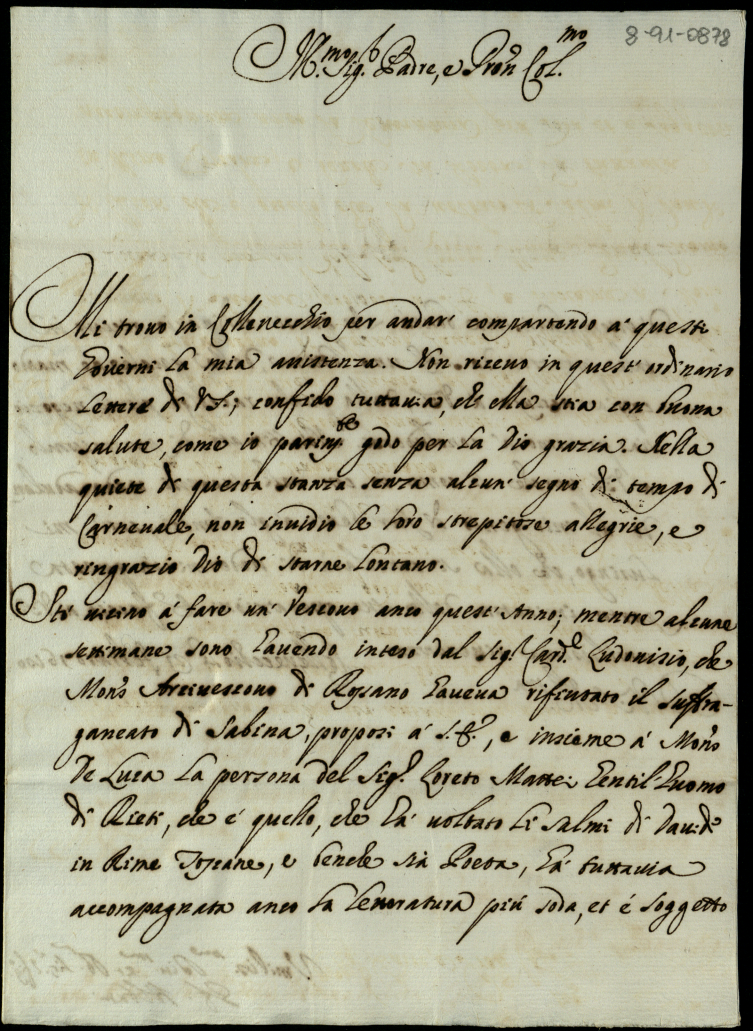 8-91-0878
Ill.mo Sig.r Padre, e Pron Col.mo
Mi trovo in Collevecchio per andar' compartendo à questi
Governi la mia assistenza. Non ricevo in quest' ordinario
Lettere di VS.; confido tuttavia, ch' ella stia con buona
salute, come io parim.te godo per la Dio grazia. Nella
quiete di questa stanza senza alcun' segno di tempo di
Carnevale, non invidio le loro strepitose allegrie, e
ringrazio Dio di starne lontano.
Stò vicino à fare un' Vescovo anco quest' Anno; mentre alcune
settimane sono havendo inteso dal Sig.r Card.e Ludovisio, che
Mons Arcivescovo di Rossano haveva rifiutato il suffra-
ganeato di Sabina, proposi à S.E., e insieme à Mons
De Luca la persona del Sig.r Loreto Mattei Gentil'huomo
di Rieti, che è quello, che hà voltato li Salmi di David
in Rime Toscane, e benche sia Poeta, hà tuttavia
accompagnata anco la letteratura più soda, et è soggetto